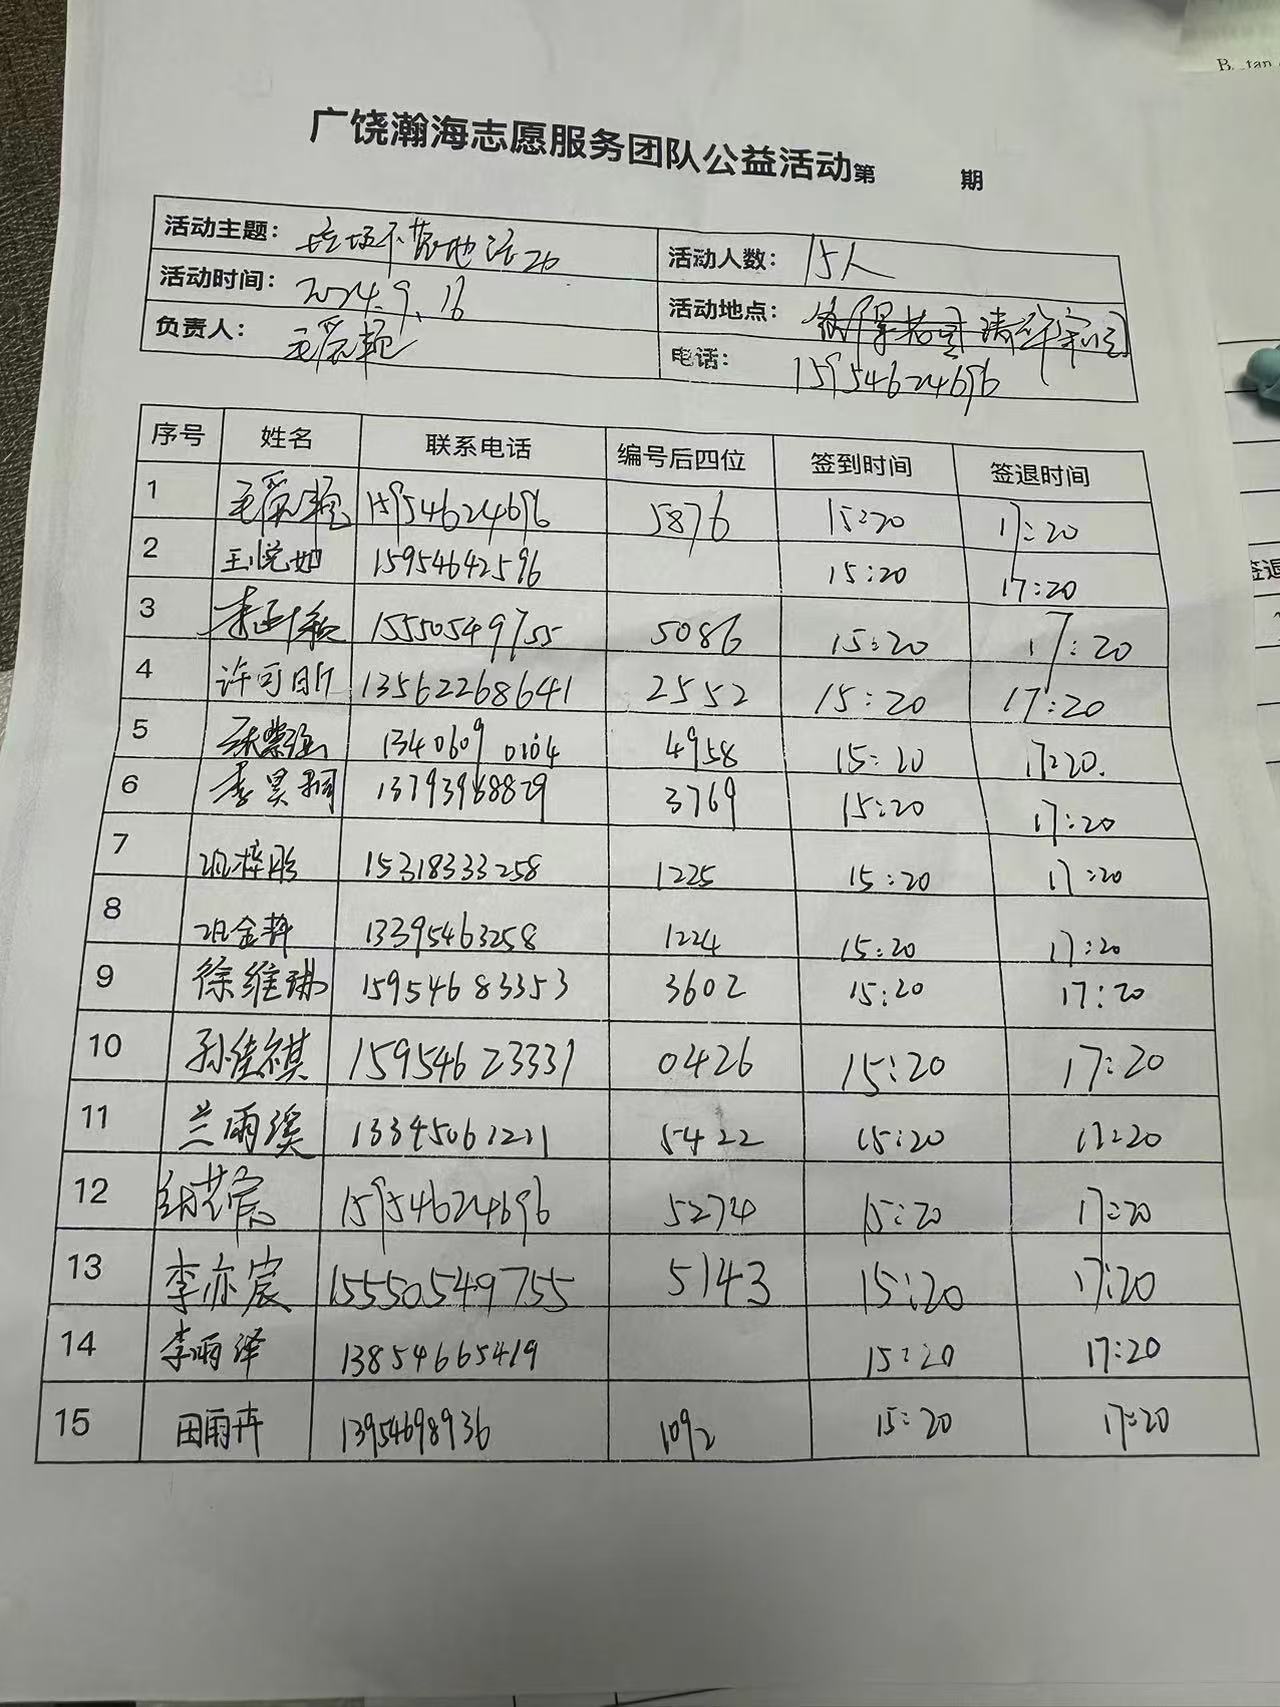 B
tan
广饶瀚海志愿服务团队公益活动第 期
活动主题： 垃圾不落地活动 活动人数： 15人
活动时间： 2024.9.16 活动地点： 清华家园
负责人： 毛爱艳 电话： 15954624696
序号 姓名 联系电话 编号后四位 签到时间 签退时间
1 毛爱艳 15954624696 5876 15:20 17:20
2 王悦如 15954642596 15:20 17:20
3 李 15550549755 5086 15:20 17:20
4 许可昕 13562268641 2552 15:20 17:20
5 13406090104 4958 15:20 17:20.
6 李昊桐 13793968829 3769 15:20 17:20
7 梓彤 15318333258 1225 15:20 17:20
8 金 13395463258 1224 15:20 17:20
9 徐维琳 15954683353 3602 15:20 17:20
10 孙佳祺 15954623331 0426 15:20 17:20
11 兰雨溪 13345061211 5422 15:20 17:20
12 15954624696 5274 15:20 17:20
13 李亦宸 15550549755 5143 15:20 17:20
14 李雨泽 13854665419 15:20 17:20
15 田雨卉 13954698936 1092 15:20 17:20
签退